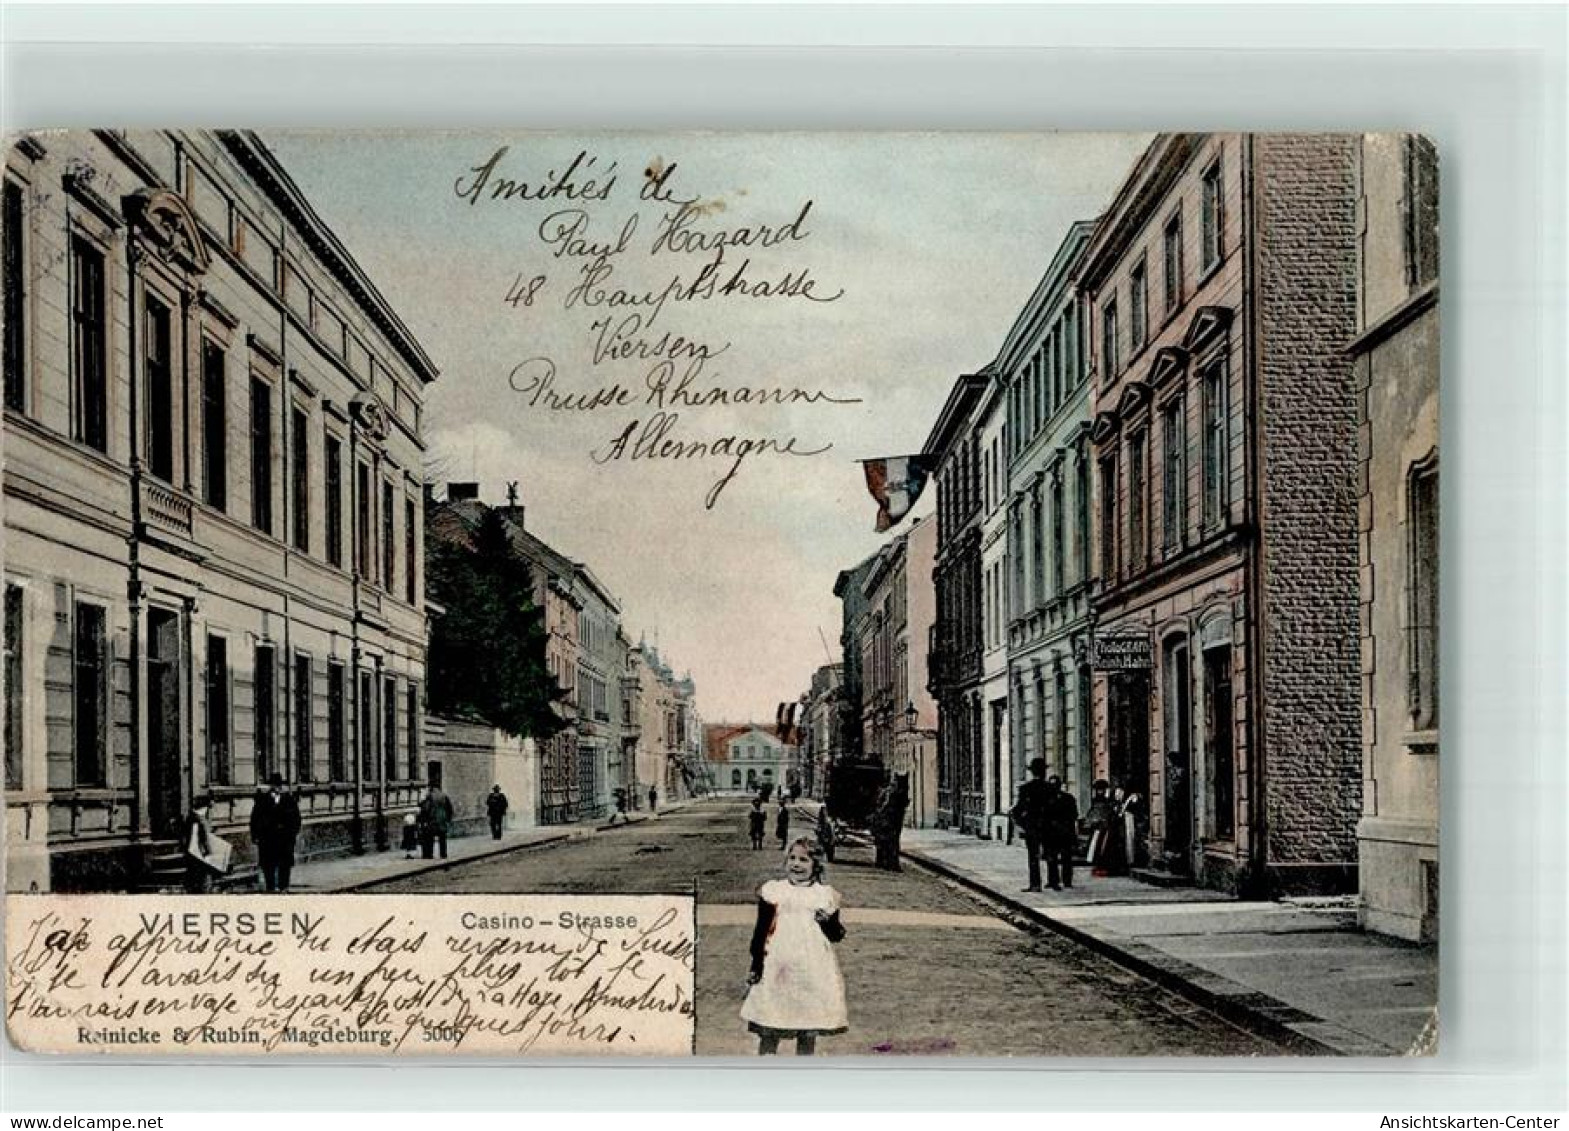 Amitiés de
Paul Hazard
48 Hauptstrasse
Viersen
Prusse Rhénanne
Allemagne
PHOTOGRAPH
VIERSEN Casino-Strasse
J'ai appris que tu étais revenu de Suisse
si je l'avais su un peu plus tôt je
t'aurais envoyé des cartes post de La Haye, Amsterdam
où j'ai été quelques jours.
Reinicke & Rubin, Magdeburg. 5006
Ansichtskarten-Center